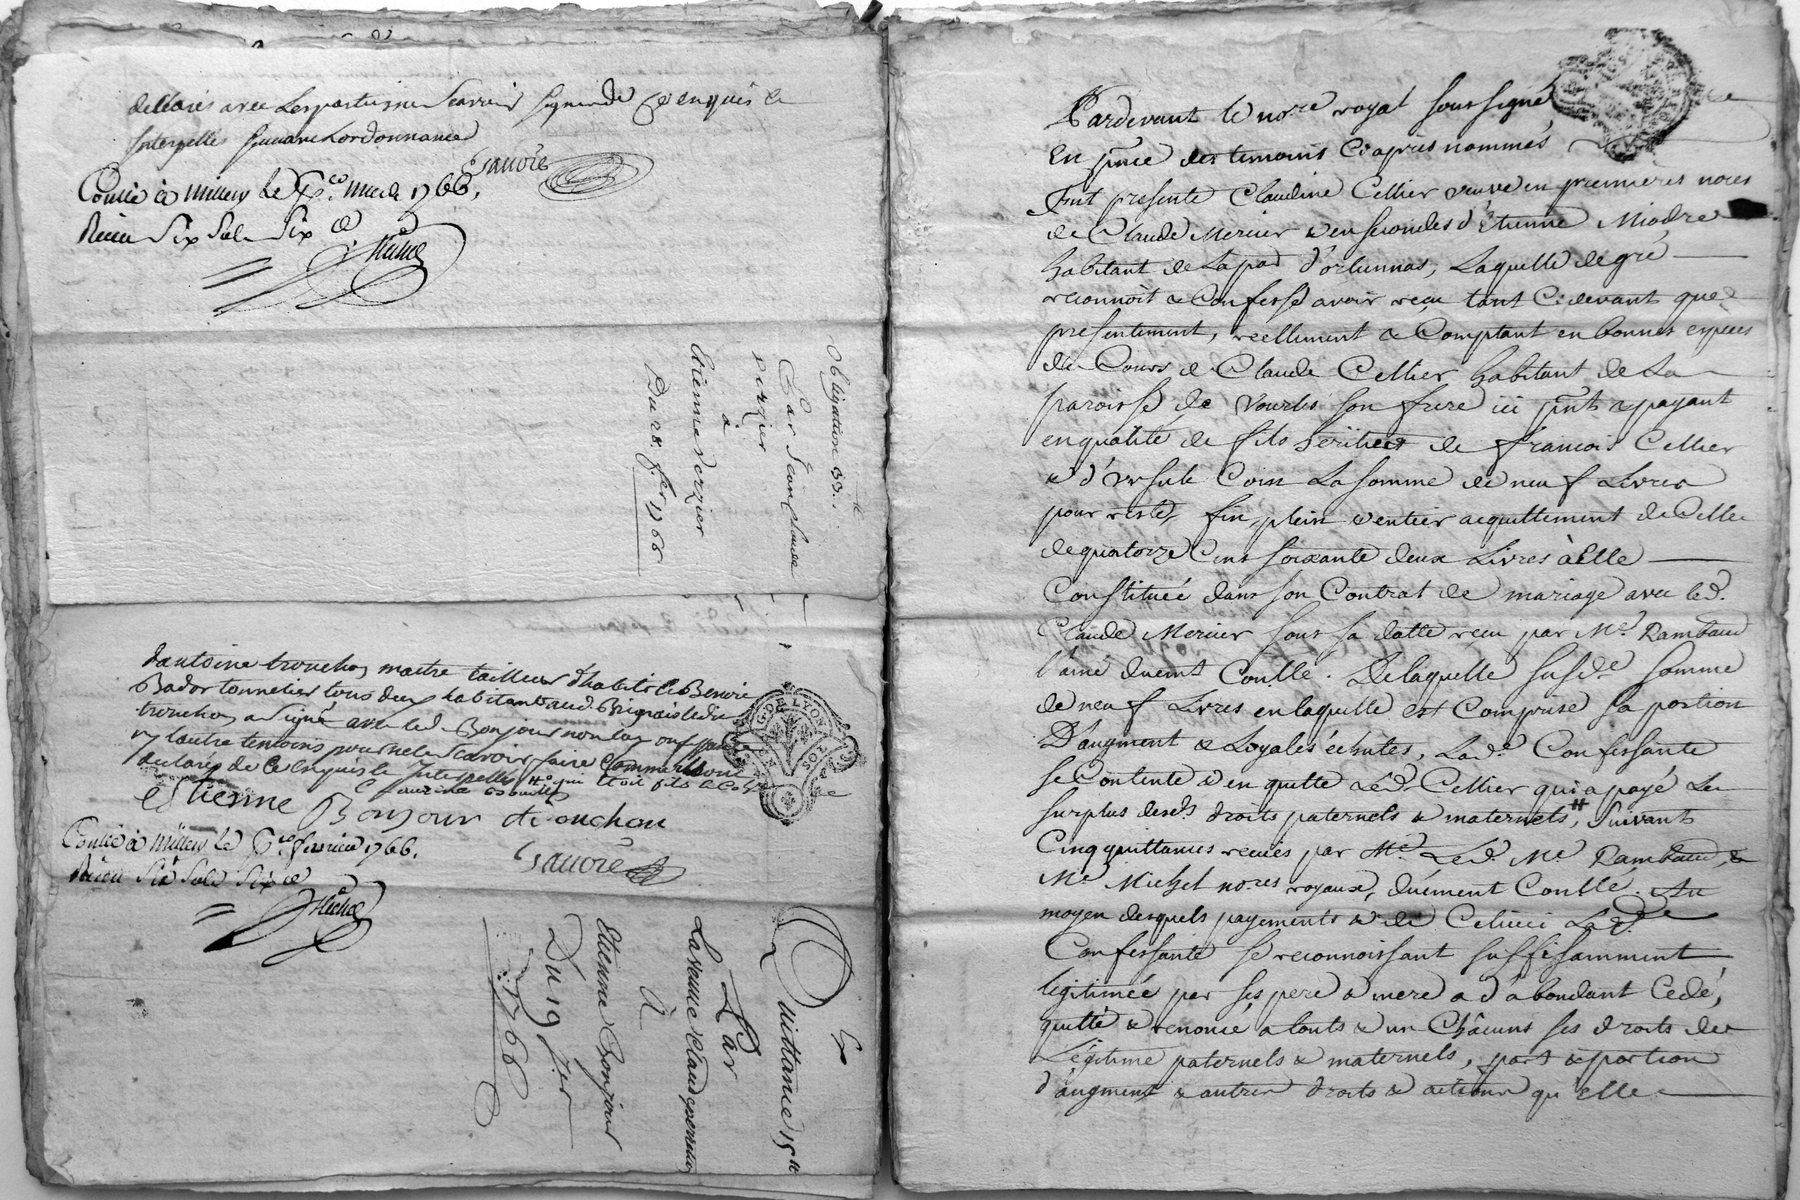 declarés avec les parties ne scavoir signer de ce enquis &
interpellés suivant l'ordonnance
Gavoire
Contlé à Millery le 1er. Mars 1766.
Receu Six Sols Six d
Michel
Obligation 33.tt
Par Jean Claude
verzier
à
Etienne verzier
Du 28. fer. 1766
d'antoine trouchon maitre tailleur d'habits & Benoit
Bador tonnelier tous deux habitants aud. Brignais led.
trouchon a signé avec led. Bonjour non la
ny l'autre temoins pour ne le scavoir faire comme ils ont
declaré de ce enquis & interpellés
Etienne Bonjour
trouchon
Gavoire
Contlé à Millery le 1er. fevrier 1766.
Receu Six Sols Six d
Michel
G. DE LYON
SOL
Quittance 15tt
Par
La veuve Claude
à
Etienne Bonjour
Du 19 Jer
1766
Pardevant le no.re royal soussigné
En pnce des temoins Ci après nommés
Fut presente Claudine Cellier veuve en premieres noces
de Claude Mercier & en secondes d'Etienne Miodre
habitant de La par d'orlienas, Laquelle de gré
reconnoit & Confesse avoir reçu tant Ci devant que
presentement, reellement & Comptant en bonnes especes
du Cours de Claude Cellier habitant de La
paroisse de Vourles son frere ici pnt & payant
en qualité de fils heritier de francois Cellier
& d'Ursule Coin La somme de neuf Livres
pour reste, fin, plein & entier acquittement de Celle
de quatorze Cens soixante deux Livres à Elle
Constituée dans son Contrat de mariage avec led.
Claude Mercier sous sa datte recu par Me. Rambaud
l'ainé duemt Contlle. De laquelle susde. somme
de neuf Livres en laquelle est Comprise sa portion
D'augment & Loyales échutes, Lade. Confessante
se Contente & en quitte Led. Cellier qui a payé Le
surplus desds. droits paternels & maternels, suivant
Cinq quittances recües par Me. Led. Me. Rambaud, &
Me. Michel no.res royaux, düement Contllé. Au
moyen desquels payements & de Celuici Lade.
Confessante se reconnoissant suffisamment
legitimée par ses pere & mere a d'abondant Cedé,
quitté & renoncé a touts & un Chacuns ses droits de
Légitime paternels & maternels, part & portion
d'augment & autres droits & actions qu'elle